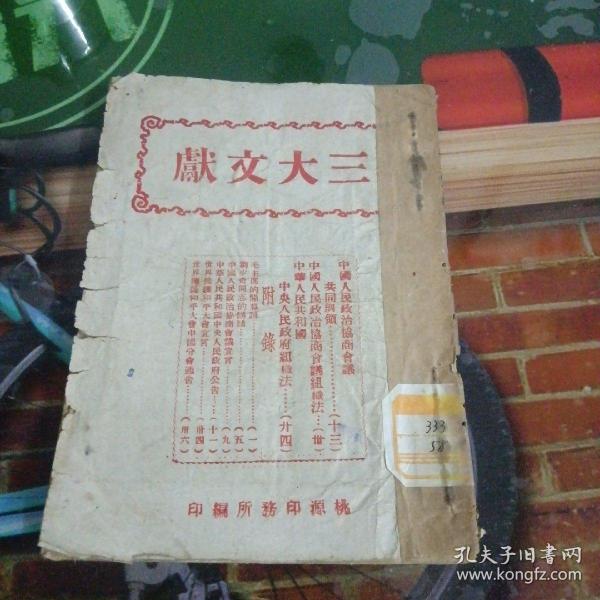 三大文獻
中國人民政治協商會議
共同綱領………(十三)
中國人民政治協商會議組織法……(卅)
中華人民共和國
中央人民政府組織法……(廿四)
附錄
毛主席的開幕詞………(一)
劉少奇同志的講話………(五)
中國人民政治協商會議宣言………(九)
中華人民共和國中央人民政府公告…(十一)
世界擁護和平大會宣言………(卅四)
世界擁護和平大會中國分會通告……(卅六)
桃源印務所編印
333
58
孔夫子旧书网
www.kongfz.com